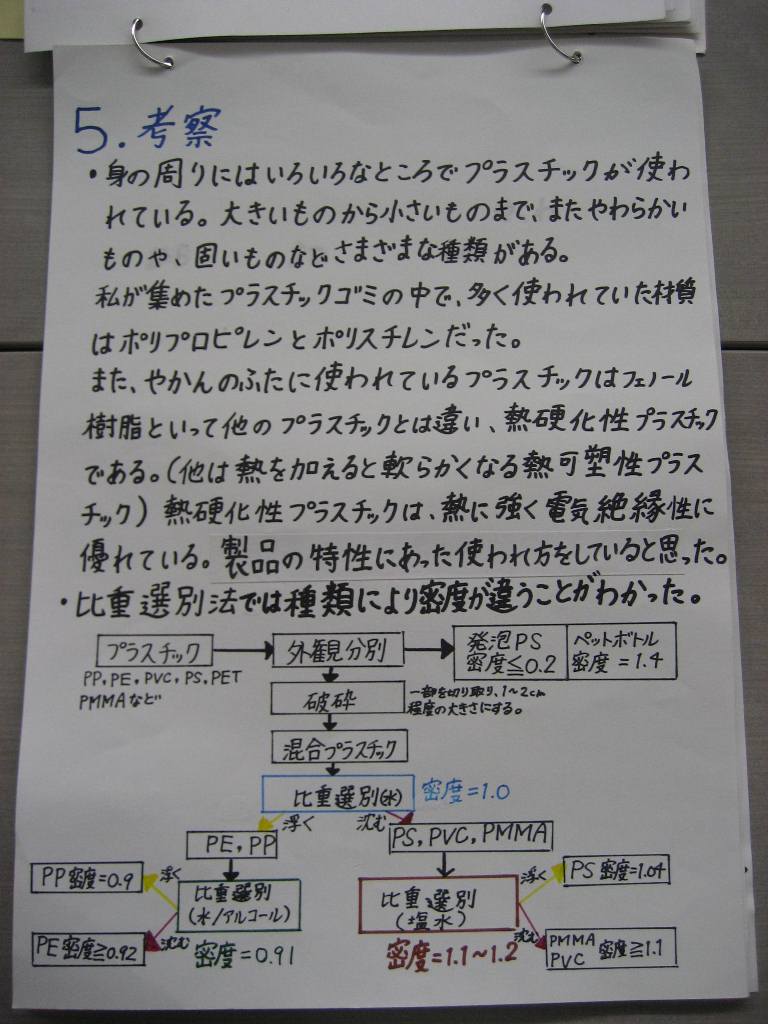 5.考察
・身の周りにはいろいろなところでプラスチックが使わ
れている。大きいものから小さいものまで、またやわらかい
ものや、固いものなどさまざまな種類がある。
私が集めたプラスチックゴミの中で、多く使われていた材質
はポリプロピレンとポリスチレンだった。
また、やかんのふたに使われているプラスチックはフェノール
樹脂といって他のプラスチックとは違い、熱硬化性プラスチック
である。(他は熱を加えると軟らかくなる熱可塑性プラス
チック)熱硬化性プラスチックは、熱に強く電気絶縁性に
優れている。製品の特性にあった使われ方をしていると思った。
・比重選別法では種類により密度が違うことがわかった。
プラスチック
PP,PE,PVC,PS,PET
PMMAなど
外観分別
発泡PS
密度≦0.2
ペットボトル
密度=1.4
破砕
一部を切り取り、1~2cm
程度の大きさにする。
混合プラスチック
比重選別(水)
密度=1.0
浮く
沈む
PE,PP
PS,PVC,PMMA
PP密度=0.9
浮く
比重選別
(水/アルコール)
PE密度≧0.92
沈む
密度=0.91
比重選別
(塩水)
密度=1.1~1.2
浮く
PS密度=1.04
沈む
PMMA
PVC
密度≧1.1